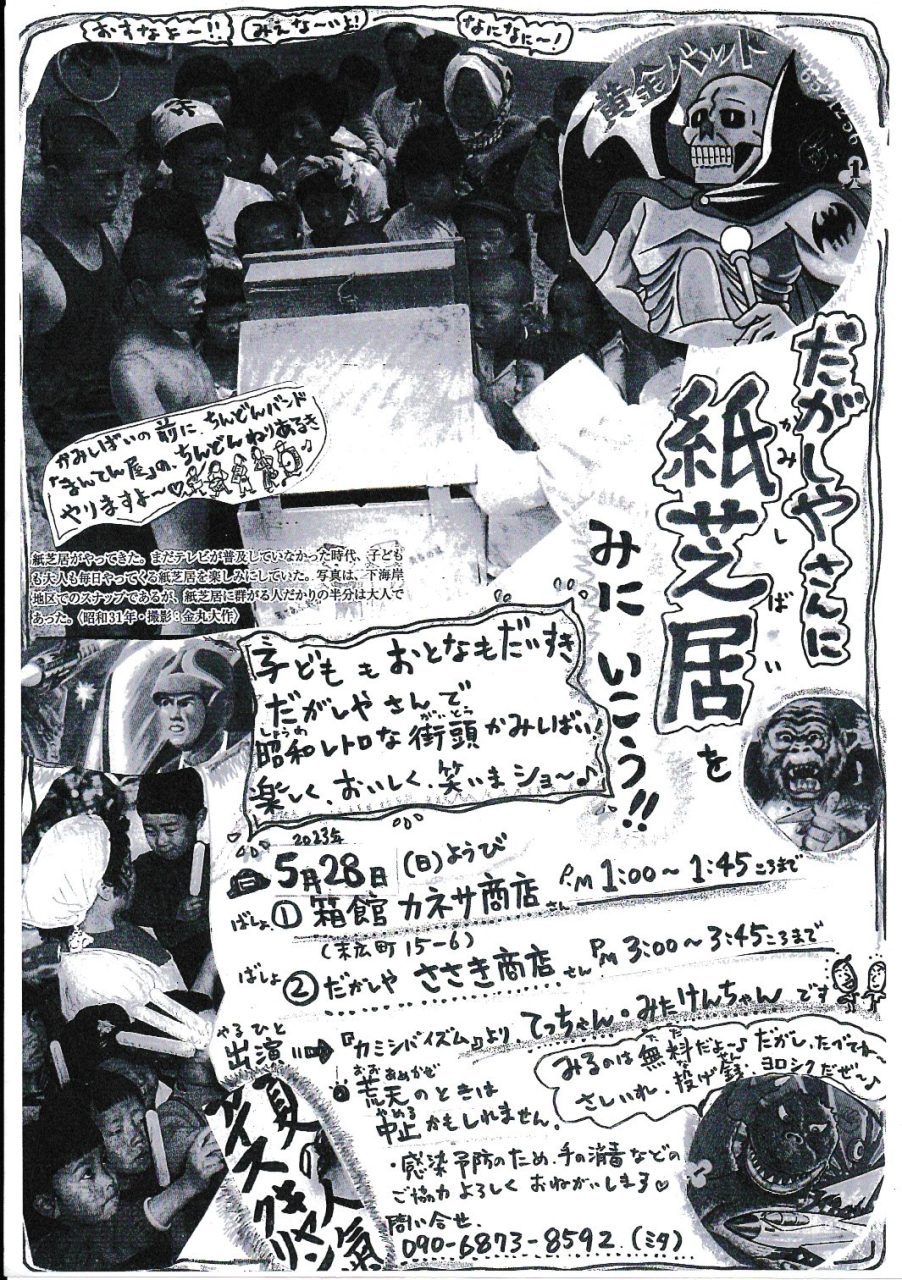 おすなよ～!!
みえな～いよ!
なになに～!
黄金バット
だがしやさんに
紙芝居を
かみしばい
みにいこう!!
かみしばいの前に、ちんどんバンド
「まんてん屋」の、ちんどんねりあるき
やりますよ～♡
紙芝居がやってきた。まだテレビが普及していなかった時代、子ども
も大人も毎日やってくる紙芝居を楽しみにしていた。写真は、下海岸
地区でのスナップであるが、紙芝居に群がる人だかりの半分は大人で
あった。〈昭和31年・撮影：金丸大作〉
子どももおとなもだいすき
だがしやさんで
しょうわ がいとう
昭和レトロな街頭かみしばい!
楽しく、おいしく、笑いまショ～♪
2023年
5月28日(日)ようび
ばしょ①箱館カネサ商店さん PM1:00～1:45ころまで
(末広町15-6)
ばしょ②だがしやささき商店さん PM3:00～3:45ころまで
やるひと
出演⇒『カミシバイズム』より、てっちゃん・みたけんちゃんです
おおあめかぜ
荒天のときは
やめる
中止かもしれません。
・感染予防のため、手の消毒などの
ご協力よろしくおねがいします♡
問い合せ、
090-6873-8592(ミタ)
ただ
みるのは無料だよ～♪だがし、たべてね～
せん
さしいれ、投げ銭、ヨロシクだぜ～♪
夏の人気
アイスクリン